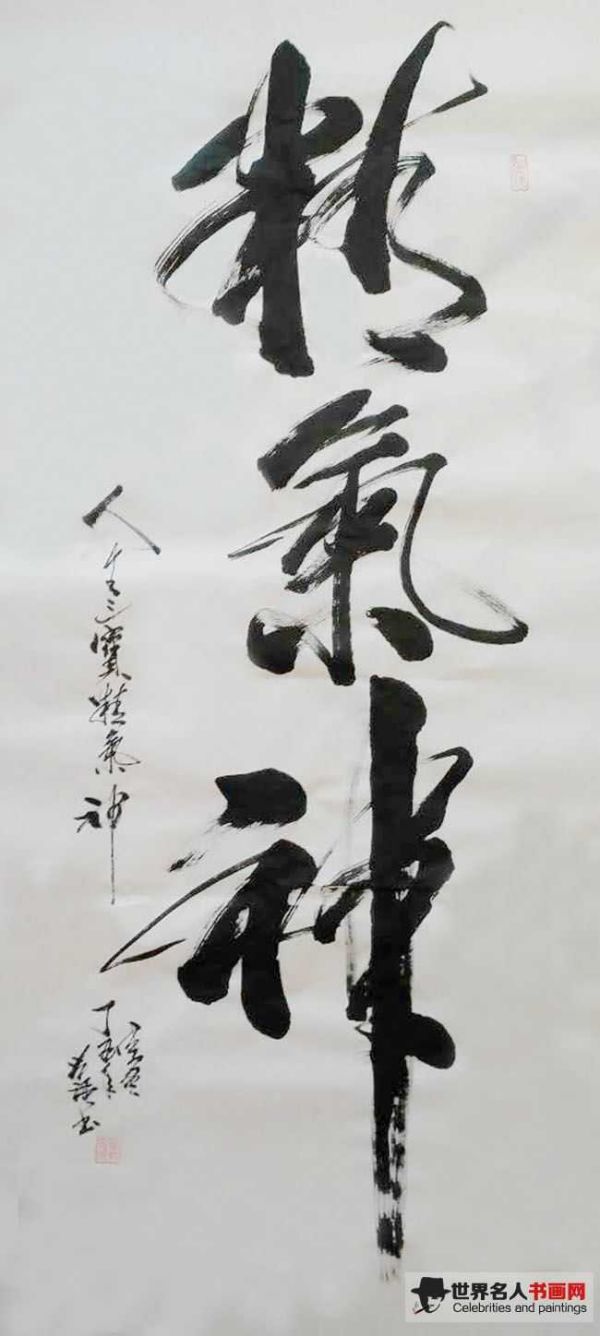 精氣神
人生三寶精氣神
丁酉年
書
世界名人书画网
Celebrities and paintings